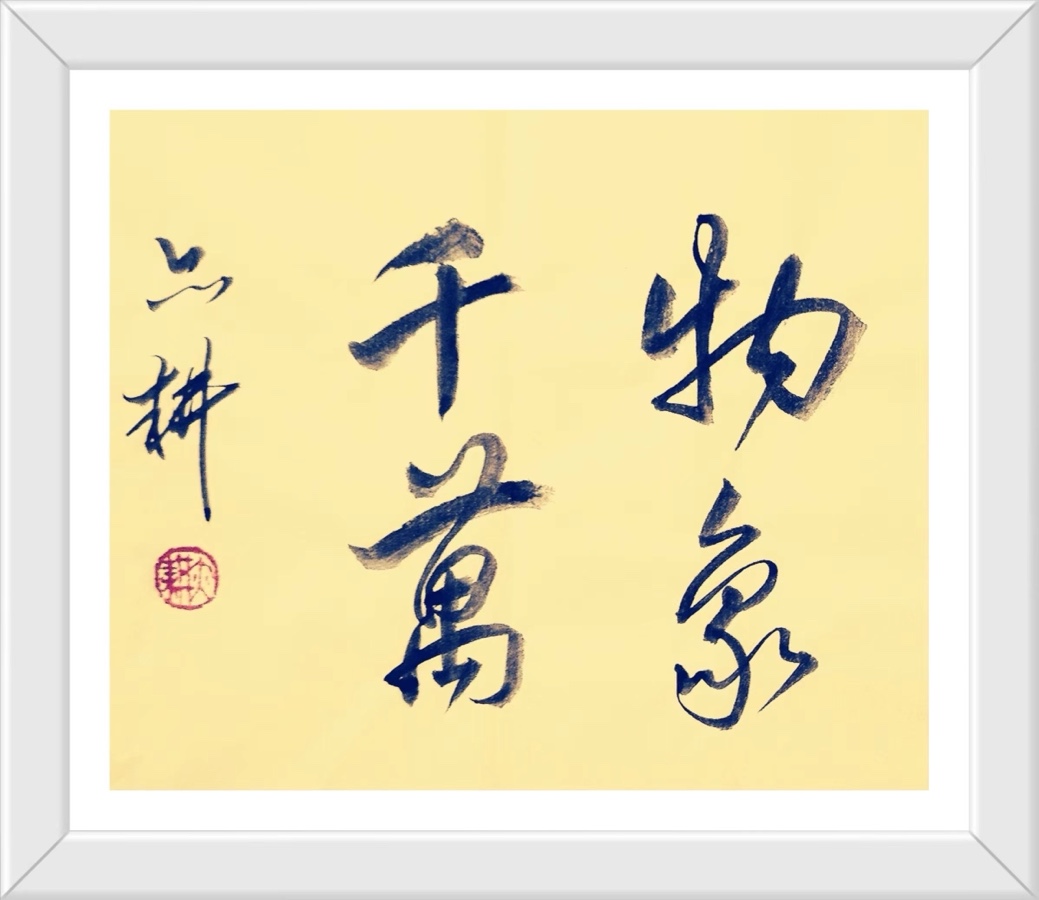 物象
千萬
耕